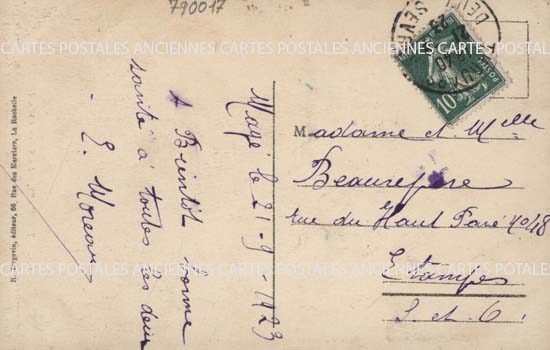 790017
Mazé le 21-9 1923
A Bientôt bonne
santé à toutes les deux
- E. Moreau -
10
Madame et Melle
Beaurepère
rue du Haut Pavé 40 48
Etampes
S. et O.
R. Bergevin, éditeur, 66 Rue des Merciers, La Rochelle
CARTES POSTALES ANCIENNES CARTES POSTALES ANCIENNES CARTES POSTALES
CARTES POSTALES ANCIENNES CARTES POSTALES ANCIENNES CARTES POSTALES
CARTES POSTALES ANCIENNES CARTES POSTALES ANCIENNES CARTES POSTALES